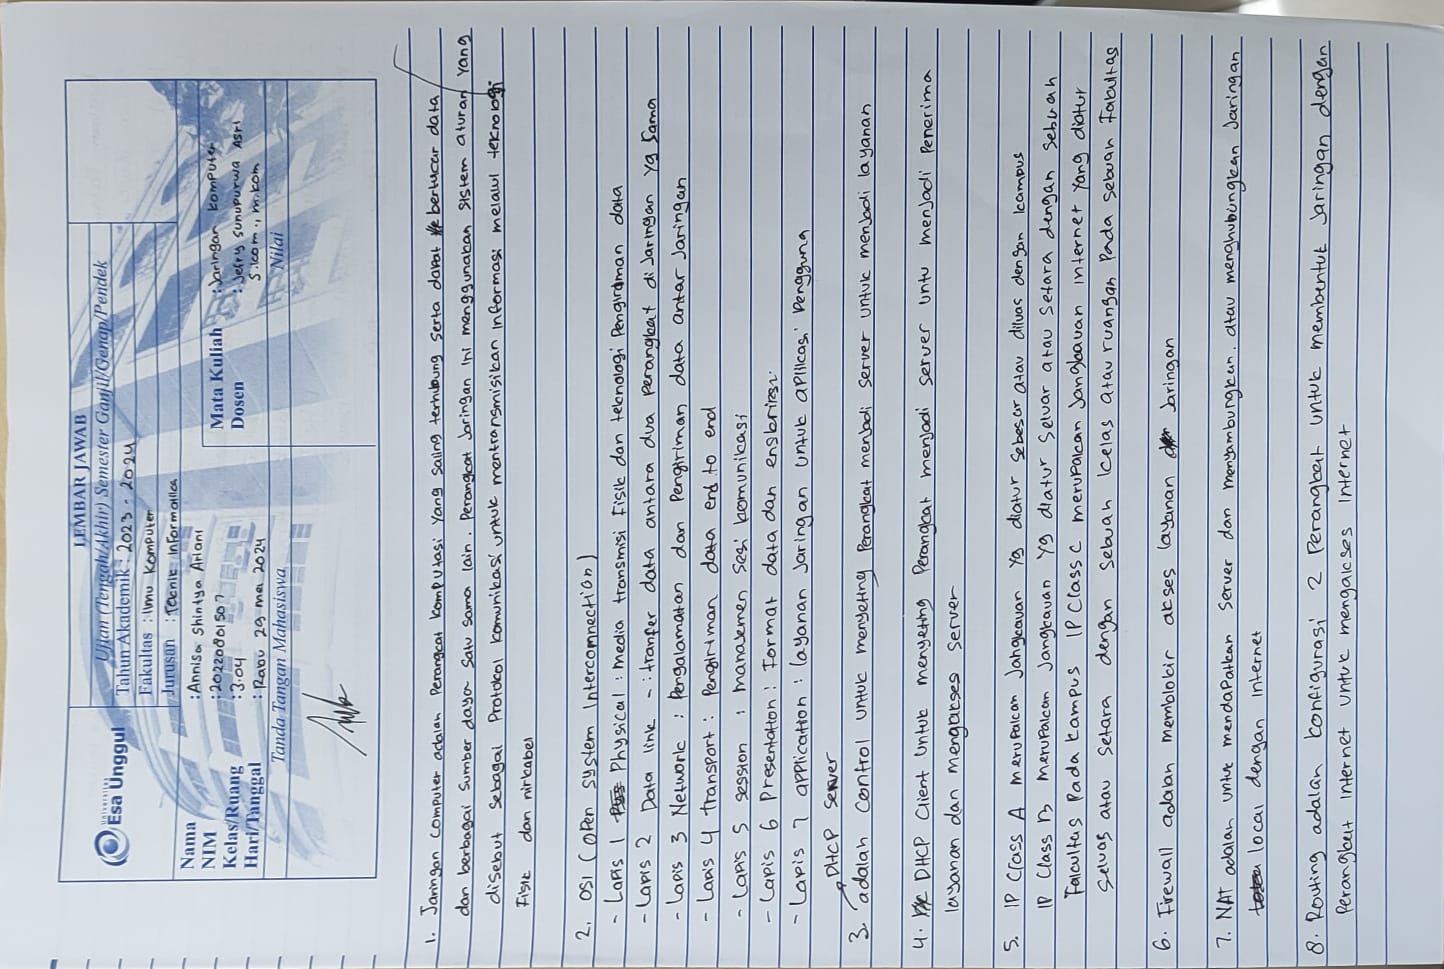 LEMBAR JAWAB
Ujian (Tengah/Akhir) Semester Ganjil/Genap/Pendek
Universitas
Esa Unggul
Tahun Akademik : 2023 - 2024
Fakultas : Ilmu Komputer
Jurusan : Teknik Informatika
Nama : Annisa Shintya Ariani
NIM : 20220801507
Kelas/Ruang : 3.04
Hari/Tanggal : Rabu 29 mei 2024
Mata Kuliah : Jaringan Komputer
Dosen : Jefry sunupurwa Asri
S.kom., M.kom
Tanda Tangan Mahasiswa
Nilai
1. Jaringan computer adalah Perangkat komputasi yang saling terhubung serta dapat bertukar data
dan berbagai sumber daya satu sama lain. Perangkat Jaringan ini menggunakan sistem aturan yang
disebut sebagai Protokol komunikasi untuk mentransmisikan informasi melalui teknologi
Fisik dan nirkabel
2. OSI (open system Intercomnection)
- Lapis 1 Physical : media transmisi Fisik dan teknologi Pengiriman data
- Lapis 2 Data link - : tranfer data antara dua perangkat di Jaringan yg sama
- Lapis 3 Network : Pengalamatan dan Pengiriman data antar Jaringan
- Lapis 4 transport : Pengiriman data end to end
- Lapis 5 session : manajemen sesi komunikasi
- Lapis 6 Presentation : Format data dan enskripsi
- Lapis 7 application : layanan Jaringan untuk aplikasi Pengguna
DHCP server
3. adalah control untuk menyetting Perangkat menjadi server untuk menjadi layanan
4. DHCP Client untuk menyeting Perangkat menjadi server untu menjadi Penerima
layanan dan mengakses server
5. IP Class A merupakan Jangkauan yg diatur sebesar atau diluas dengan kampus
IP Class B merupakan Jangkauan yg diatur seluar atau setara dengan sebuah
Fakultas Pada kampus IP Class C merupakan Jangkauan internet yang diatur
seluas atau setara dengan sebuah kelas atau ruangan Pada sebuah Fakultas
6. Firewall adalah memblokir akses layanan Jaringan
7. NAT adalah untuk mendapatkan server dan menyambungkan. atau menghubungkan Jaringan
local dengan internet
8. Routing adalah konfigurasi 2 Perangkat untuk membentuk Jaringan dengan
Perangkat internet untuk mengakses internet